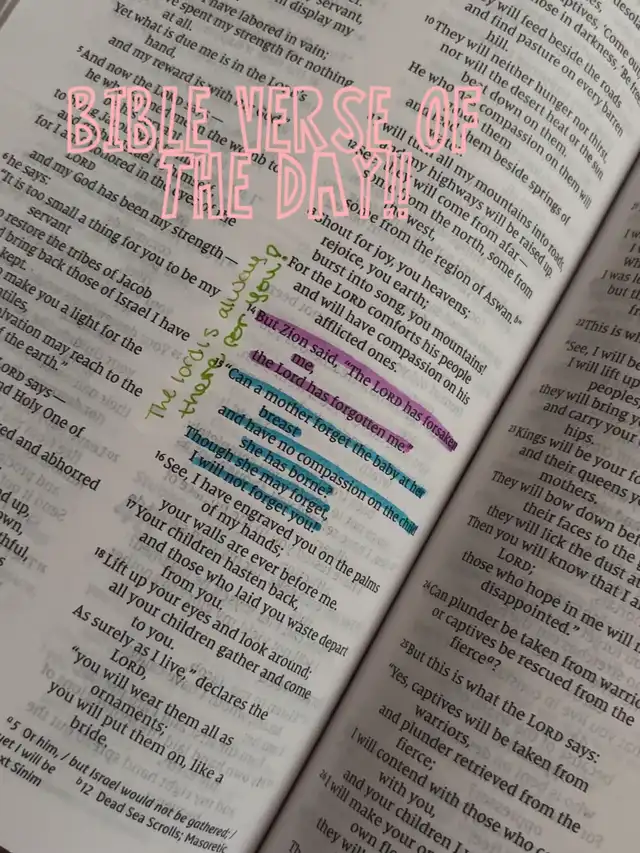 BIBLE VERSE OF
THE DAY!!
servant,
display my
have labored in vain;
Yet what is due me is in the LORD's
spent my strength for nothing
at all.
hand,
and my reward is with
5And now the
he who
for I am
LORD
and my God has been my strength—
6he says:
"It is too small a thing for you to be my
servant
restore the tribes of Jacob
bring back those of Israel I have
kept.
make you a light for the
may reach to the
of the earth."
LORD says—
and Holy One of
and abhorred
The Lord is always
there for you!
10They will neither hunger not thirst,
nor will the desert heat or the sun
beat down on them.
He who has compassion on them will
them beside springs of
will turn all my mountains into roads,
my highways will be raised up.
will come from afar—
from the north, some from
west,
some from the region of Aswan.
Shout for joy, you heavens;
rejoice, you earth;
burst into song, you mountains!
For the LORD comforts his people
and will have compassion on his
afflicted ones.
14But Zion said, "The LORD has forsaken
me,
the Lord has forgotten me."
15"Can a mother forget the baby at her
breast
and have no compassion on the child
she has borne?
Though she may forget,
I will not forget you!
16See, I have engraved you on the palms
of my hands;
your walls are ever before me.
17Your children hasten back,
and those who laid you waste depart
from you.
18Lift up your eyes and look around;
all your children gather and come
to you.
As surely as I live," declares the
LORD,
"you will wear them all as
ornaments;
you will put them on, like a
bride.
a5 Or him, / but Israel would not be gathered; /
yet I will be b12 Dead Sea Scrolls; Masoretic
Sinim
will feed beside the roads
and find pasture on every barren
hill.
22This is
"See, I will
I will lift up
peoples;
they will bring
and carry your
hips.
23Kings will be your
and their queens
mothers.
They will bow down
their faces to the
they will lick the dust
Then you will know that I
LORD;
those who hope in me will
disappointed."
24Can plunder be taken from warriors
or captives be rescued from the
fierce?
25But this is what the LORD says:
"Yes, captives will be taken from
warriors,
and plunder retrieved from the
fierce;
I will contend with those who
with you,
and your children I
26I will make your
own
they will